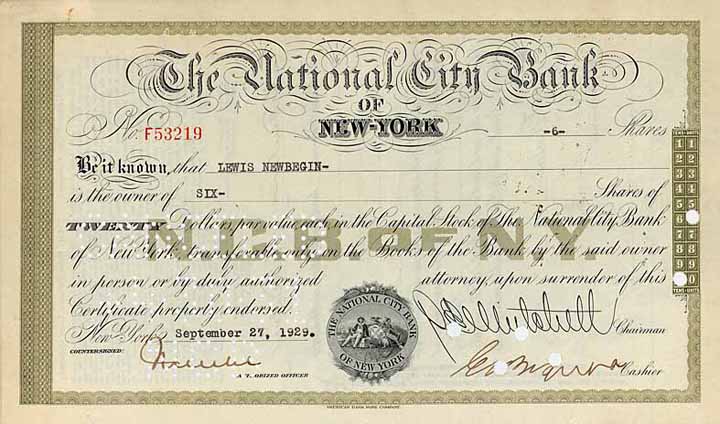 The National City Bank
OF
NEW-YORK
No. F53219 -6- Shares
Be it known, that LEWIS NEWBEGIN-
is the owner of SIX- Shares of
TWENTY Dollars par value each in the Capital Stock of The National City Bank
of New York transferable only on the Books of the Bank by the said owner
in person or by duly authorized attorney, upon surrender of this
Certificate properly endorsed.
N.C.B. OF N.Y.
New York, September 27, 1929.
Chairman
COUNTERSIGNED:
AUTHORIZED OFFICER
Cashier
THE NATIONAL CITY BANK
OF NEW YORK
TENS UNITS
1 1
2 2
3 3
4 4
5 5
6
7 7
8 8
9 9
0
TENS UNITS
AMERICAN BANK NOTE COMPANY.